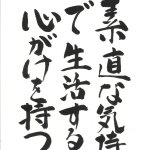 素直な気持
で生活する
心がけを持つ